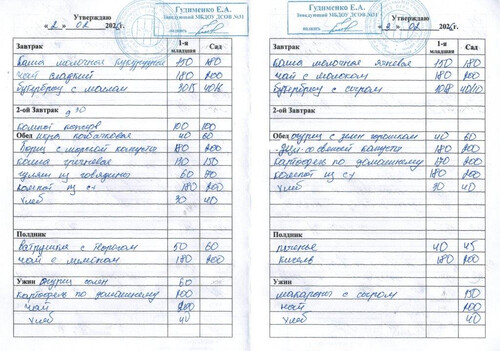 Утверждаю
Гудименко Е.А.
Заведующий МБДОУ ДСОВ №31
« 2 » 02 2026г.
Завтрак 1-я младшая Сад
Каша молочная кукурузная 150 180
Чай сладкий 180 200
Бутерброд с маслом 30/5 40/6
2-ой Завтрак
Компот 100 100
Обед Икра кабачковая 40 60
Борщ с морской капустой 180 200
Каша гречневая 130 150
Гуляш из говядины 60 70
Компот из с/ф 180 200
Хлеб 30 40
Полдник
Ватрушка с творогом 50 60
Чай с лимоном 180 200
Ужин Огурец солен 60
Картофель по домашнему 200
Чай 200
Хлеб 40
Утверждаю
Гудименко Е.А.
Заведующий МБДОУ ДСОВ №31
« 3 » 02 2026г.
Завтрак 1-я младшая Сад
Каша молочная ячневая 150 180
Чай с молоком 180 200
Бутерброд с сыром 30/8 40/10
2-ой Завтрак
Обед Огурец с зелен горошком 40 60
Щи со свежей капусты 180 200
Картофель по домашнему 170 200
Компот из с/ф 180 200
Хлеб 30 40
Полдник
Печенье 40 45
Кисель 180 200
Ужин
Макароны с сыром 150
Чай 200
Хлеб 40